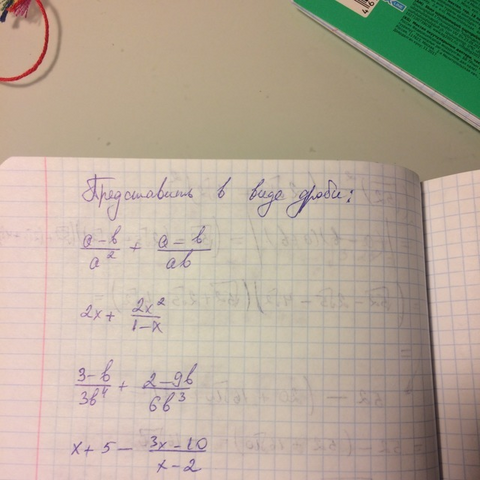 Представить в виде дроби:
(a-b)/a² + (a=b)/ab
2x + 2x²/(1-x)
(3-b)/3b⁴ + (2-9b)/6b³
x+5 - (3x-10)/(x-2)